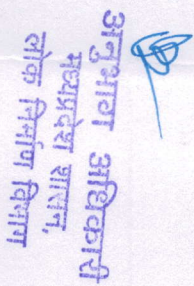 अनुभाग अधिकारी
मध्यप्रदेश शासन,
लोक निर्माण विभाग